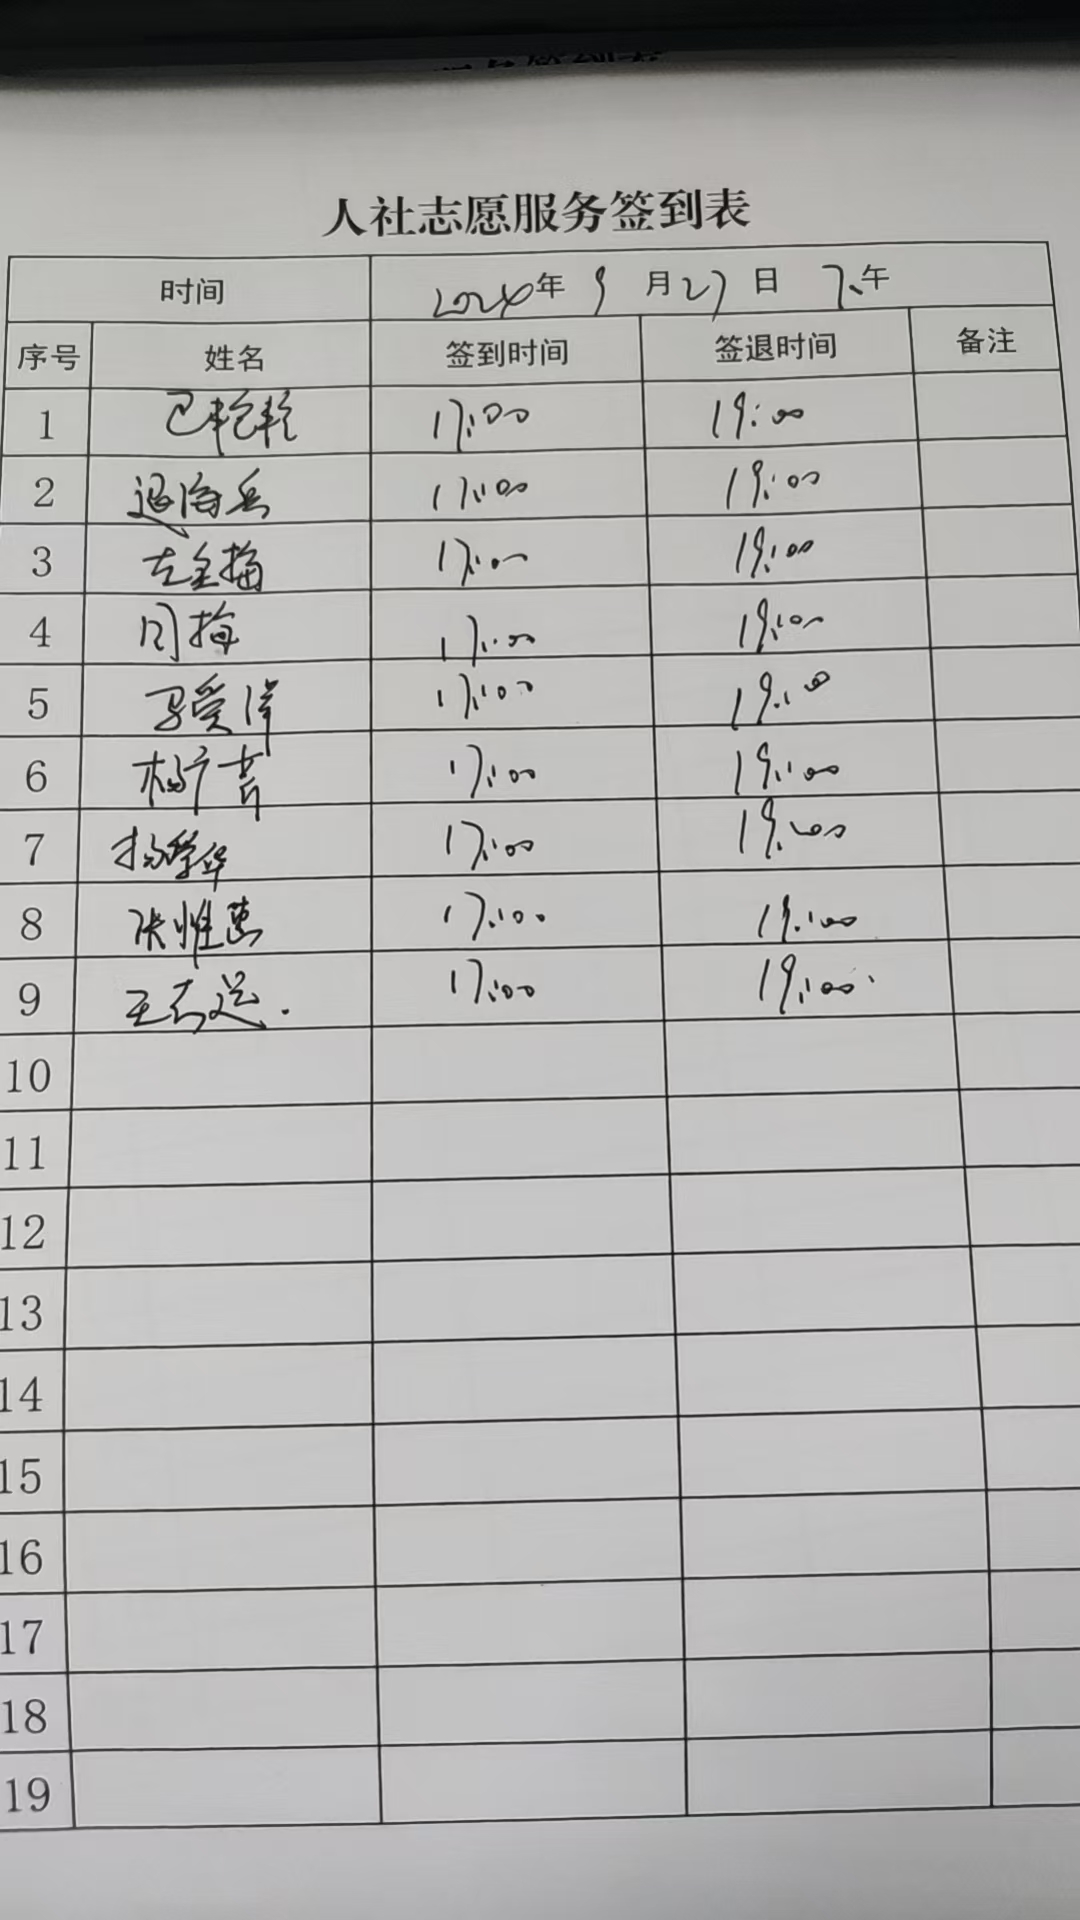 人社志愿服务签到表
时间 2024年 9月27日 下午
序号 姓名 签到时间 签退时间 备注
1 17:00 19:00
2 17:00 19:00
3 17:00 19:00
4 周梅 17:00 19:00
5 17:00 19:00
6 17:00 19:00
7 杨学华 17:00 19:00
8 张惟惠 17:00 19:00
9 17:00 19:00
10
11
12
13
14
15
16
17
18
19